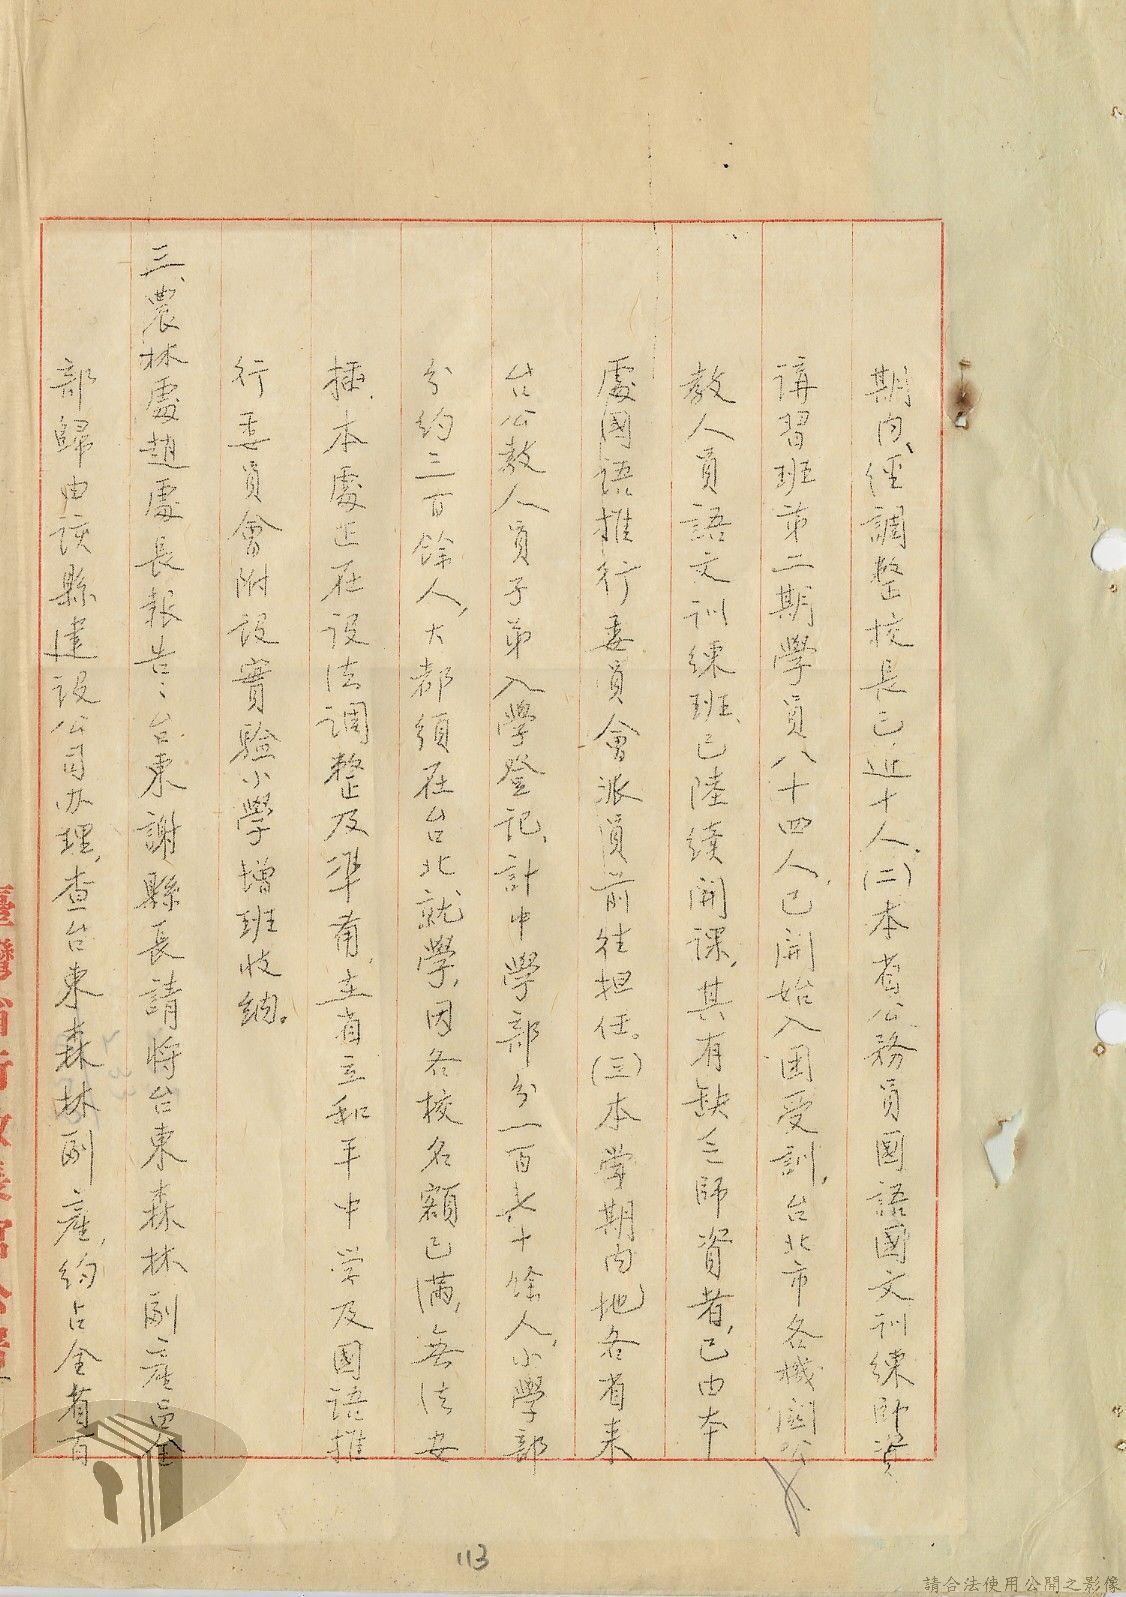 期內、經調整校長已近十人。(二)本省公務員國語國文訓練師資
講習班第二期學員八十四人，已開始入團受訓，台北市各機關公
教人員語文訓練班、已陸續開課，其有缺乏師資者，已由本
處國語推行委員會派員前往担任。(三)本學期內地各省來
台公教人員子弟入學登記、計中學部分一百七十餘人，小學部
分約三百餘人，大都須在台北就學，因各校名額已滿，無法安
插、本處正在設法調整及準備，在省立和平中學及國語推
行委員會附設實驗小學增班收納。
三、農林處趙處長報告：台東謝縣長請將台東森林副產品全
部歸由該縣建設公司办理，查台東森林副產，約占全省百
113
請合法使用公開之影像